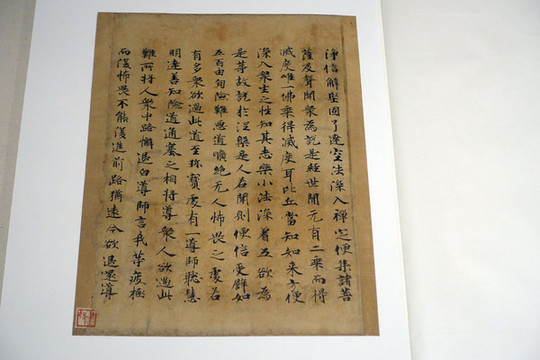 淨信解堅固了達空法深入禪定便集諸菩
薩及聲聞衆為說是經世間无有二乘而得
滅度唯一佛乘得滅度耳比丘當知如來方便
深入衆生之性知其志樂小法深著五欲為
是等故說於涅槃是人若聞則便信受譬如
五百由旬險難惡道曠絕无人怖畏之處若
有多衆欲過此道至珎寶處有一導師聦慧
明達善知險道通塞之相將導衆人欲過此
難所將人衆中路懈退白導師言我等疲極
而復怖畏不能復進前路猶遠今欲退還導